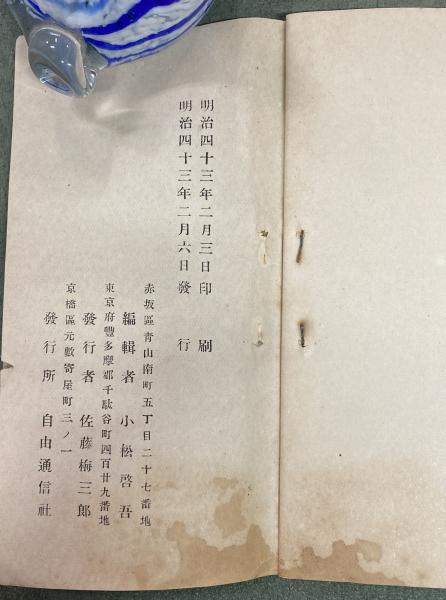 明治四十三年二月三日印刷
明治四十三年二月六日發行
赤坂區青山南町五丁目二十七番地
編輯者 小松啓吾
東京府豐多摩郡千駄谷町四百廿九番地
發行者 佐藤梅三郎
京橋區元數寄屋町三ノ一
發行所 自由通信社